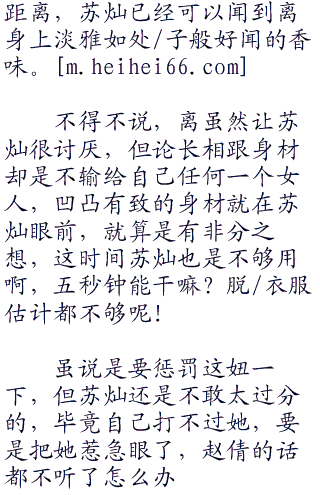 距离，苏灿已经可以闻到离
身上淡雅如处/子般好闻的香
味。[m.heihei66.com]
不得不说，离虽然让苏
灿很讨厌，但论长相跟身材
却是不输给自己任何一个女
人，凹凸有致的身材就在苏
灿眼前，就算是有非分之
想，这时间苏灿也是不够用
啊，五秒钟能干嘛？脱/衣服
估计都不够呢！
虽说是要惩罚这妞一
下，但苏灿还是不敢太过分
的，毕竟自己打不过她，要
是把她惹急眼了，赵倩的话
都不听了怎么办